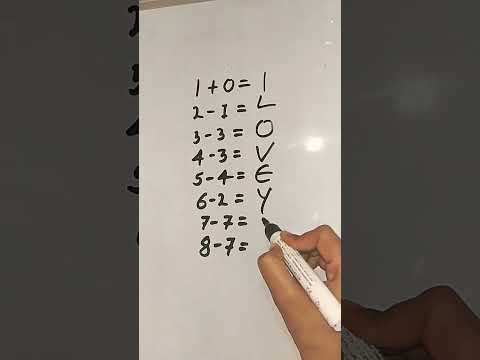 1 + 0 = 1
2 - I = L
3 - 3 = O
4 - 3 = V
5 - 4 = E
6 - 2 = Y
7 - 7 =
8 - 7 =